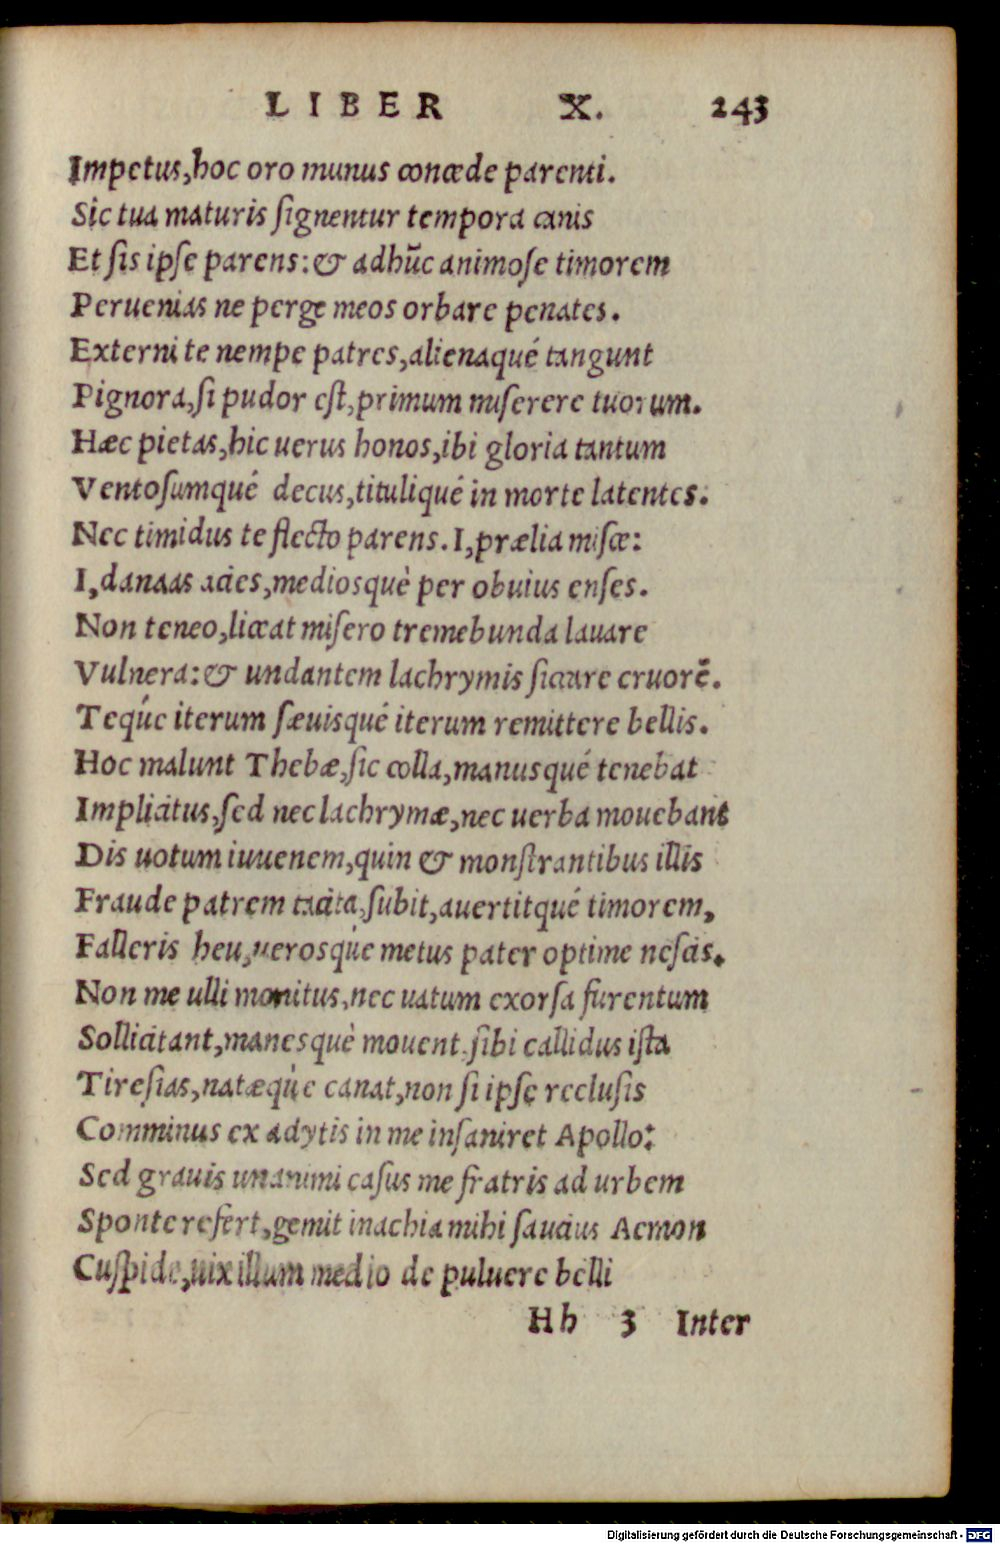 LIBER X. 243
Impetus, hoc oro munus concede parenti.
Sic tua maturis ſignentur tempora canis
Et ſis ipſe parens: & adhũc animoſe timorem
Peruenias ne perge meos orbare penates.
Externi te nempe patres, alienaqué tangunt
Pignora, ſi pudor eſt, primum miſerere tuorum.
Hæc pietas, hic uerus honos, ibi gloria tantum
Ventoſumqué decus, tituliqué in morte latentes.
Nec timidus te flecto parens. I, prælia miſce:
I, danaas acies, mediosquè per obuius enſes.
Non teneo, liceat miſero tremebunda lauare
Vulnera: & undantem lachrymis ſiccare cruorẽ.
Teq́ue iterum ſæuisqué iterum remittere bellis.
Hoc malunt Thebæ, ſic colla, manusqué tenebat
Implicitus, ſed nec lachrymæ, nec uerba mouebant
Dis uotum iuuenem, quin & monſtrantibus illis
Fraude patrem tacita, ſubit, auertitqué timorem,
Falleris heu, uerosq́ue metus pater optime neſcis.
Non me ulli monitus, nec uatum exorſa furentum
Sollicitant, manesquè mouent. ſibi callidus iſta
Tireſias, natæq́ue canat, non ſi ipſe recluſis
Comminus ex adytis in me inſaniret Apollo:
Sed grauis unanimi caſus me fratris ad urbem
Sponte refert, gemit inachia mihi ſaucius Aemon
Cuſpide, uix illum medio de puluere belli
Hh 3 Inter
Digitalisierung gefördert durch die Deutsche Forschungsgemeinschaft - DFG